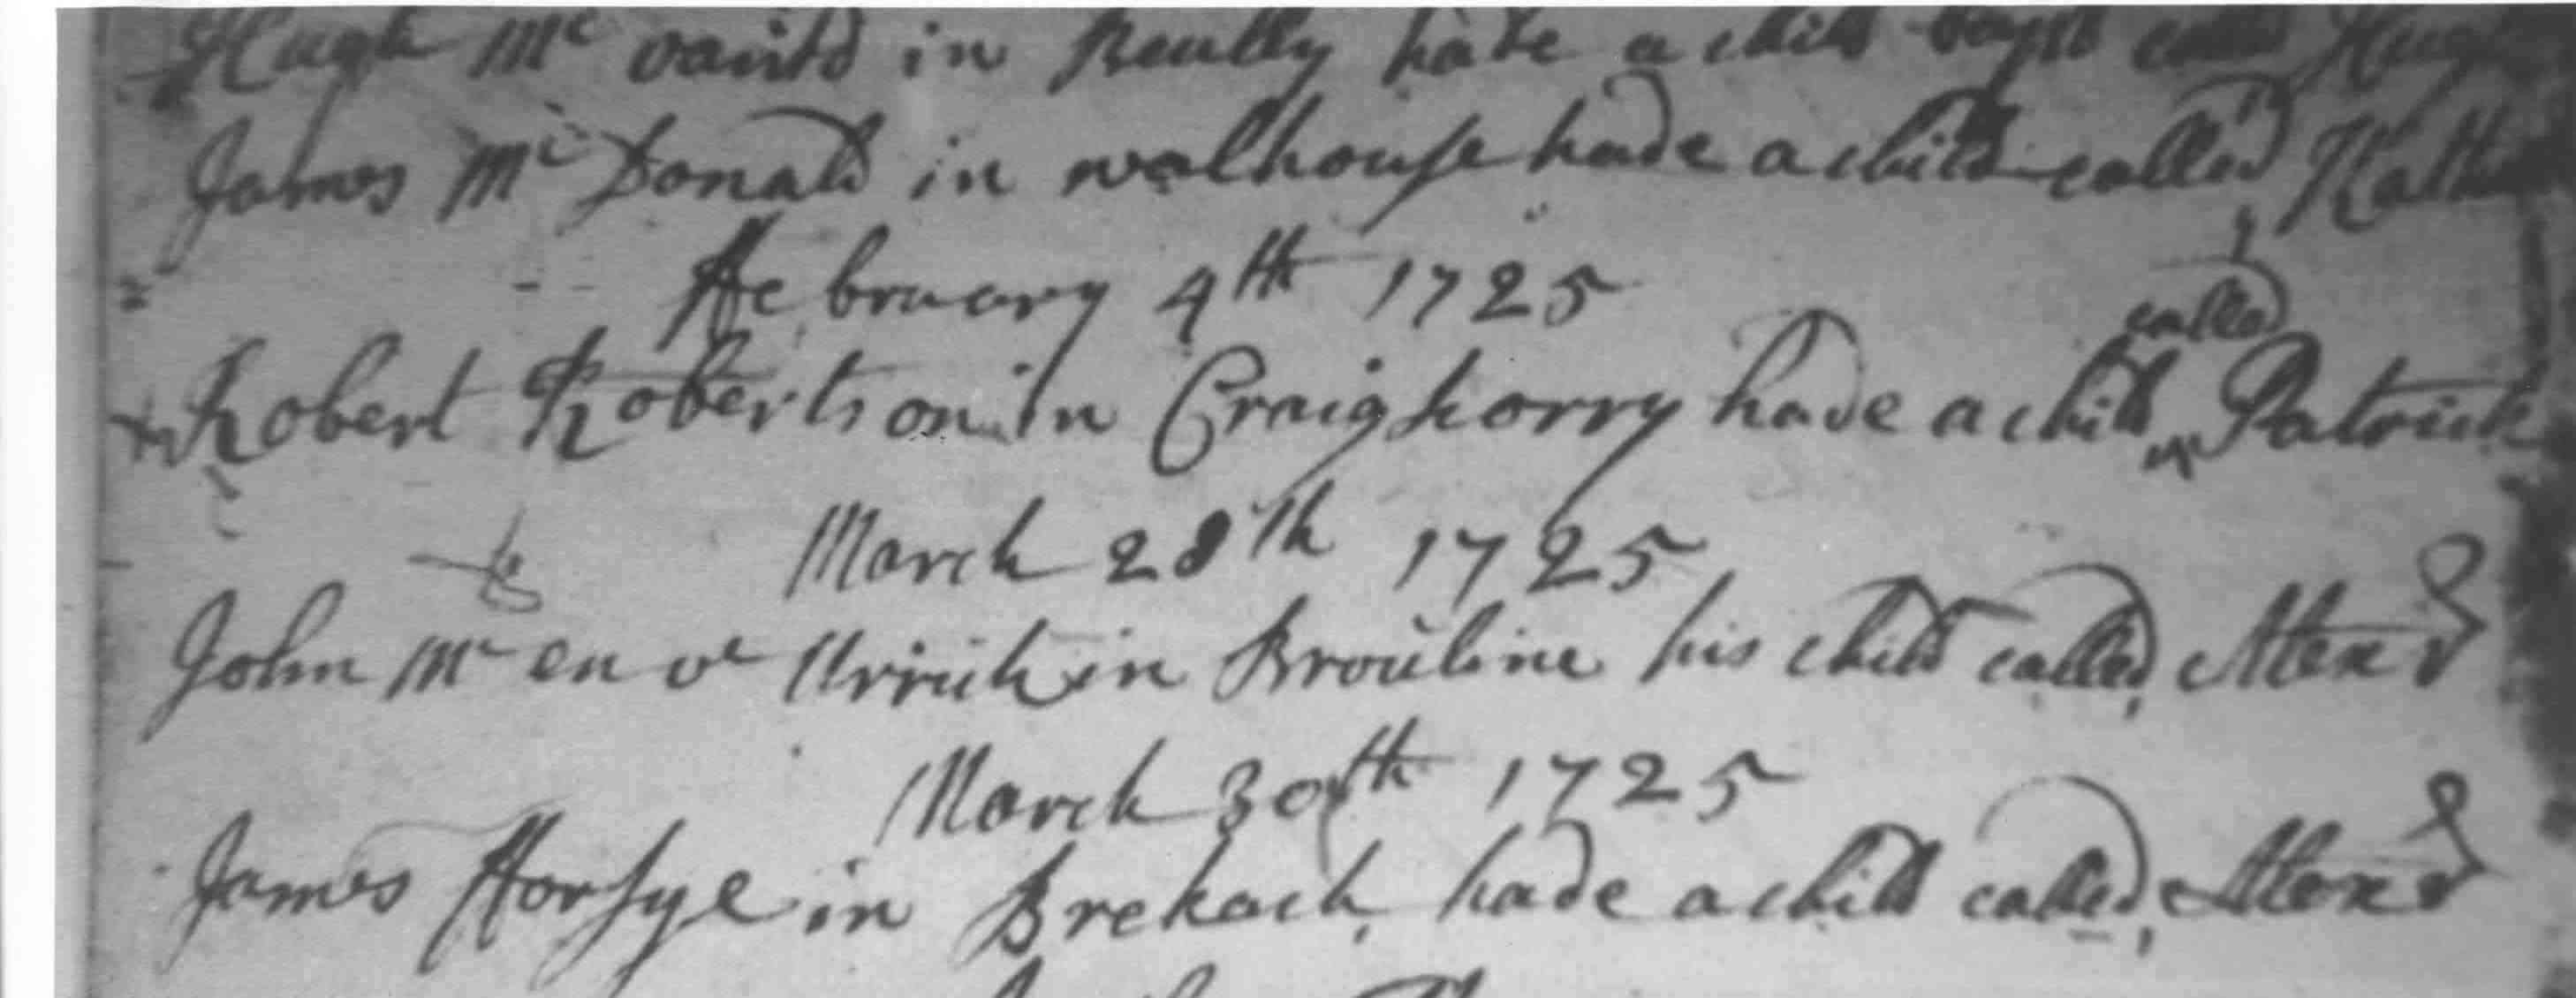 Hugh Mc in hade a child bapt called Hugh
James Mc Donald in walhouse hade a child called
February 4th 1725
Robert Robertson in Craighorry hade a child called Patrick
March 28th 1725
John Mc en vc Urrich in Brouline his child called Alexr
March 30th 1725
James Forsye in Brekach hade a child called Alexr